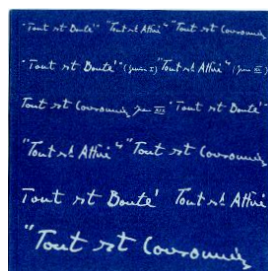 "Tout est Bonté" "Tout est Attiré" "Tout est Couronné
"Tout est Bonté" "Tout est Attiré"
Tout est Couronné "Tout est Bonté"
"Tout est Attiré" "Tout est Couronné
Tout est Bonté Tout est Attiré
"Tout est Couronné